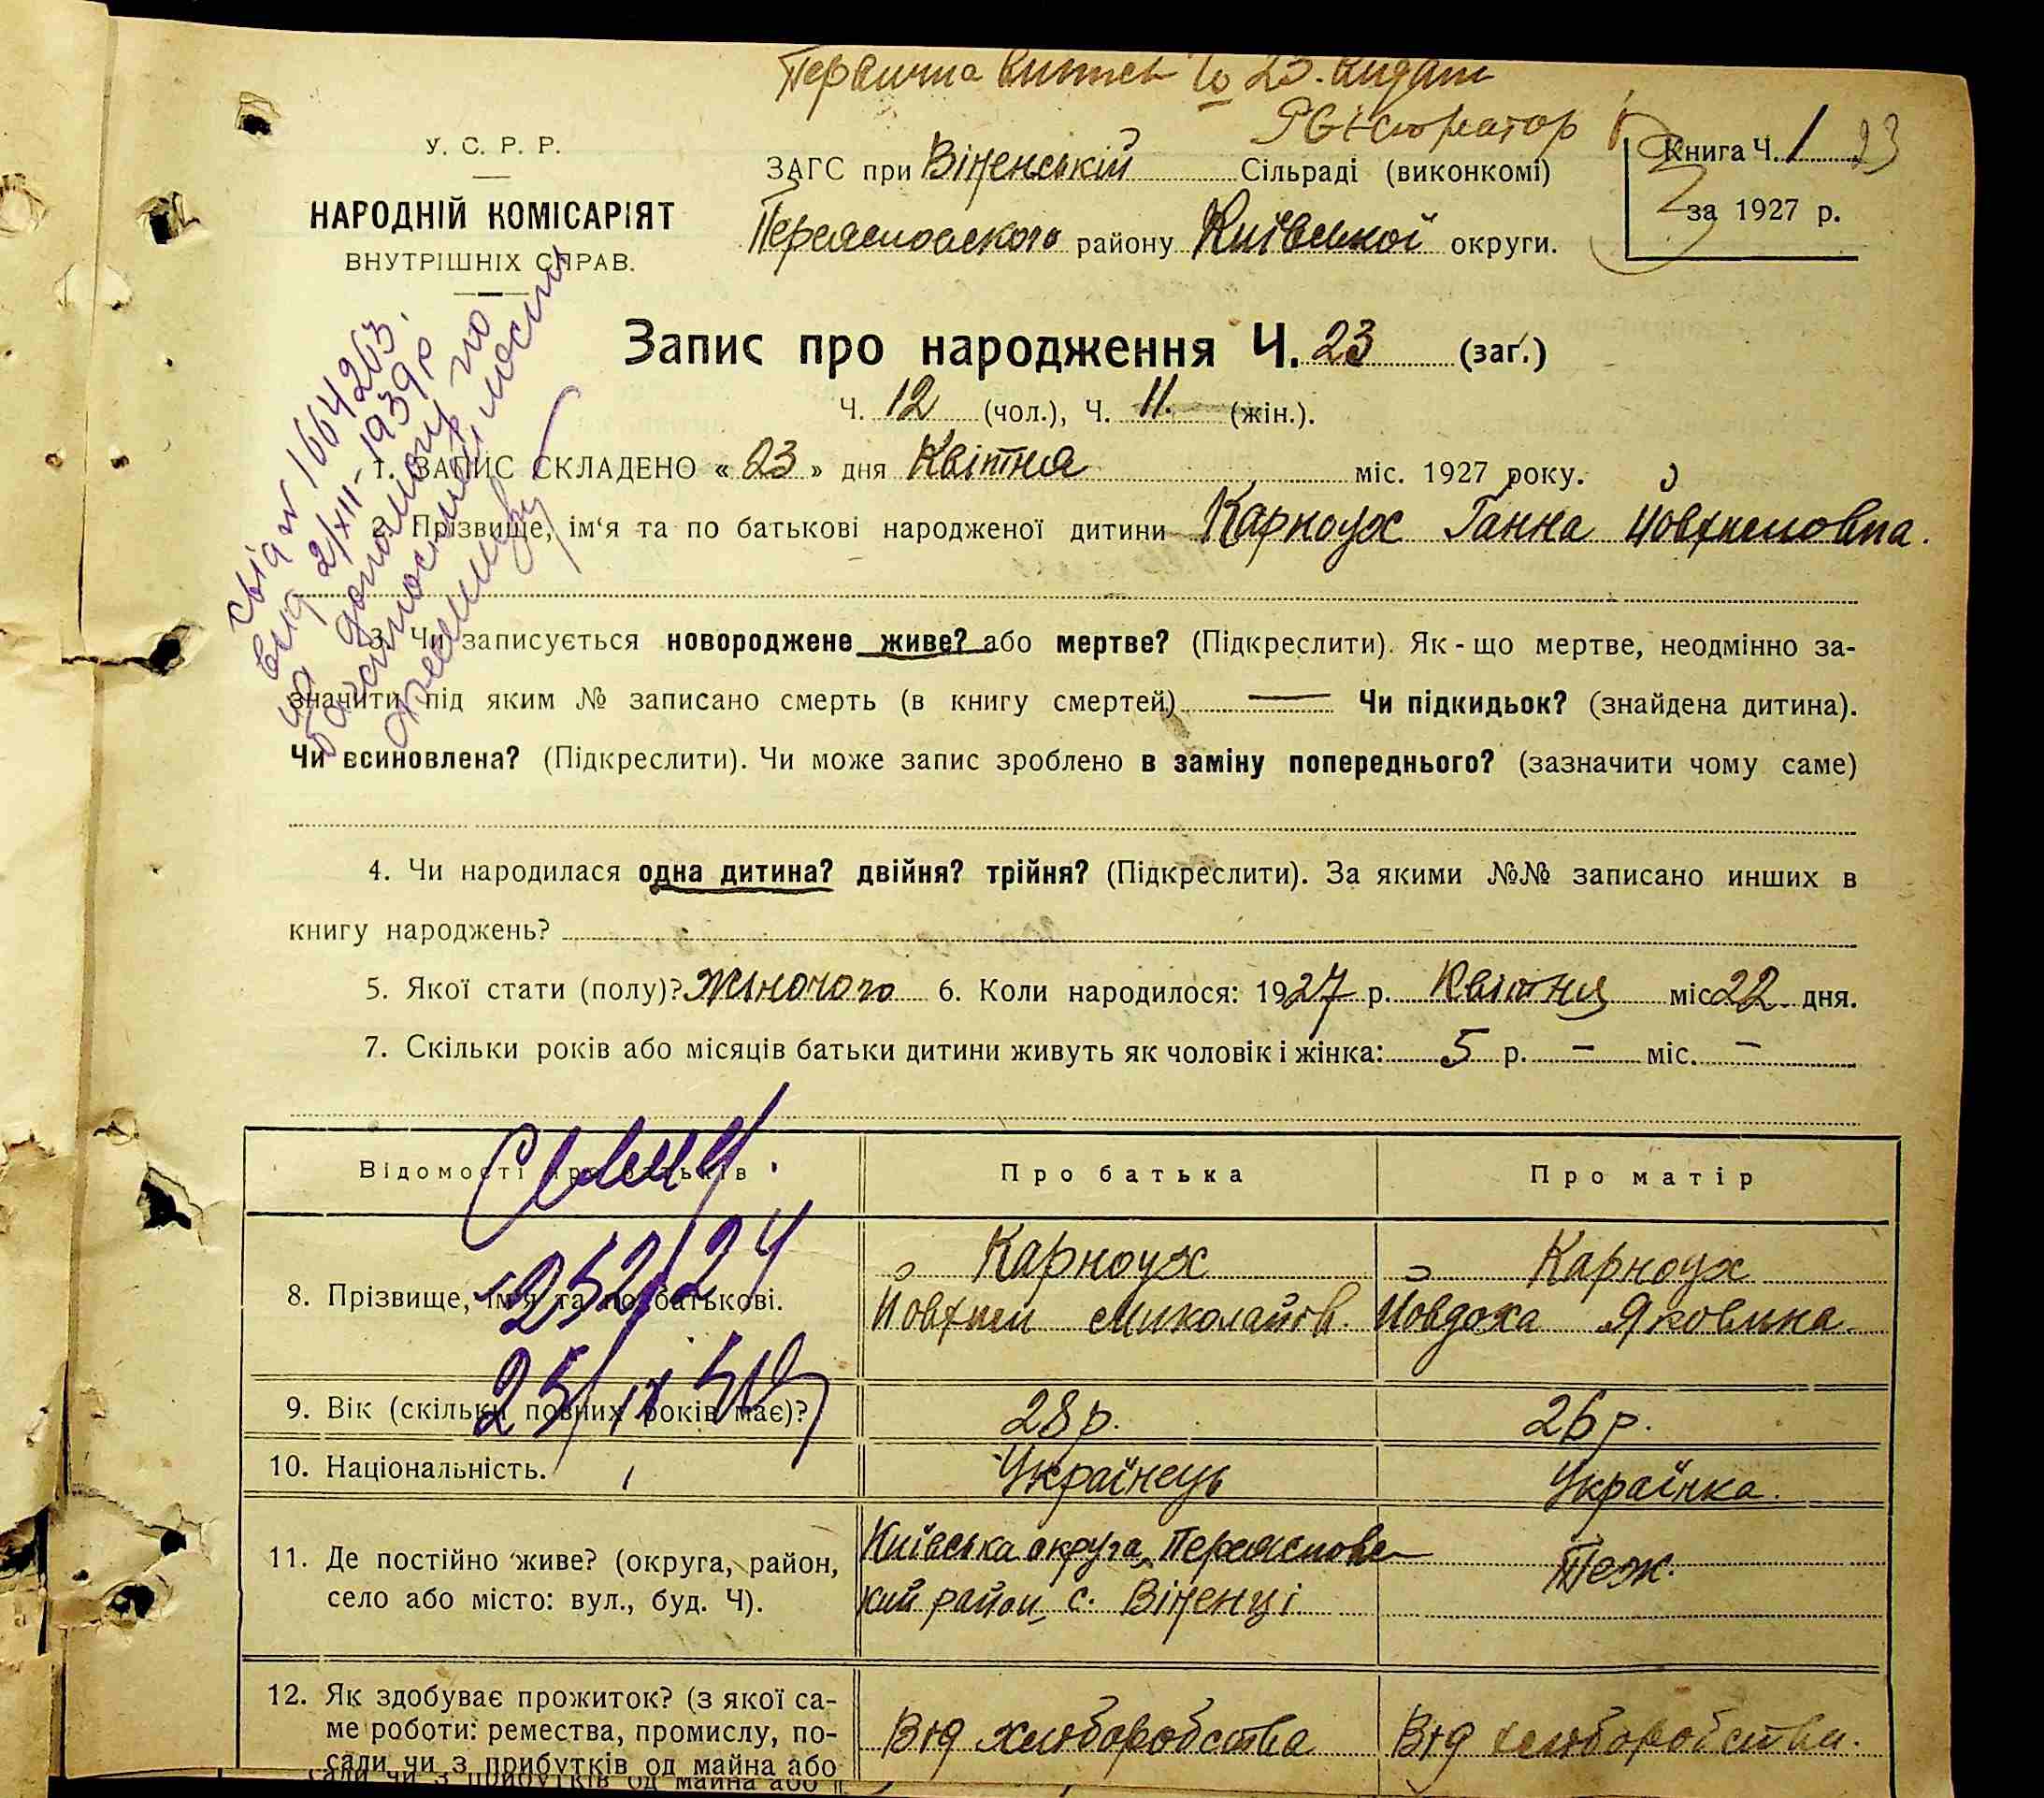 Первична виписка № 23. видана
Реєстратор
У. С. Р. Р.
НАРОДНІЙ КОМІСАРІЯТ
ВНУТРІШНІХ СПРАВ.
ЗАГС при Віненській Сільраді (виконкомі)
Переяславского району Київської округи.
Книга Ч. 1
за 1927 р.
23
Запис про народження Ч. 23 (заг.)
Ч. 12 (чол.), Ч. 11. (жін.).
1. ЗАПИС СКЛАДЕНО « 23 » дня Квітня міс. 1927 року.
2. Прізвище, ім'я та по батькові народженої дитини Карноух Ганна Йовхимовна.
3. Чи записується новороджене живе? або мертве? (Підкреслити). Як-що мертве, неодмінно за-
значити під яким № записано смерть (в книгу смертей) — Чи підкидьок? (знайдена дитина).
Чи всиновлена? (Підкреслити). Чи може запис зроблено в заміну попереднього? (зазначити чому саме)
свід № 1664263.
вид 2/XII-1939р
на допомогу по
багатосімейности
4. Чи народилася одна дитина? двійня? трійня? (Підкреслити). За якими №№ записано инших в
книгу народжень?
5. Якої стати (полу)? Жіночого 6. Коли народилося: 1927 р. Квітня міс 22 дня.
7. Скільки років або місяців батьки дитини живуть як чоловік і жінка: 5 р. – міс. –
Відомості про батьків Про батька Про матір
8. Прізвище, ім'я та по батькові. Карноух Карноух
Йовхим Миколайов. Йовдоха Яковивна.
252/24
9. Вік (скільки повних років має)? 28 р. 26 р.
10. Національність. Українець Українка.
11. Де постійно живе? (округа, район, Київська округа, Переяславс Теж.
село або місто: вул., буд. Ч). кий район с. Віненці
12. Як здобуває прожиток? (з якої са-
ме роботи: ремества, промислу, по- Від хліборобства Від хліборобства.
сади чи з прибутків од майна або